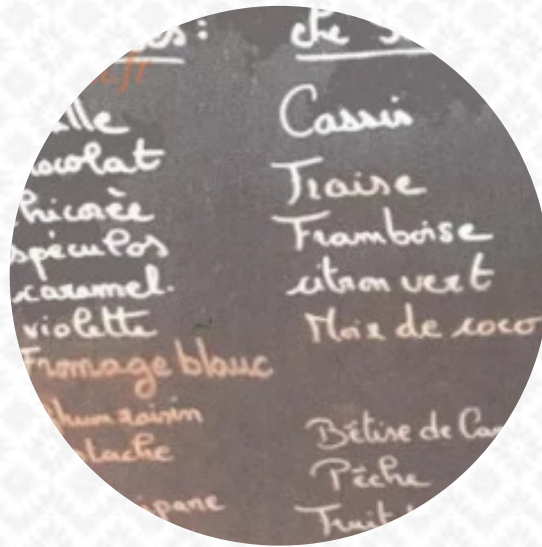 colat
hicorèe
spéculos
caramel.
violette
Fromage blanc
hum raisin
tache
pane
Cassis
Fraise
Framboise
citron vert
Noix de coco
Bêtise de Ca
Pêche
Fruit